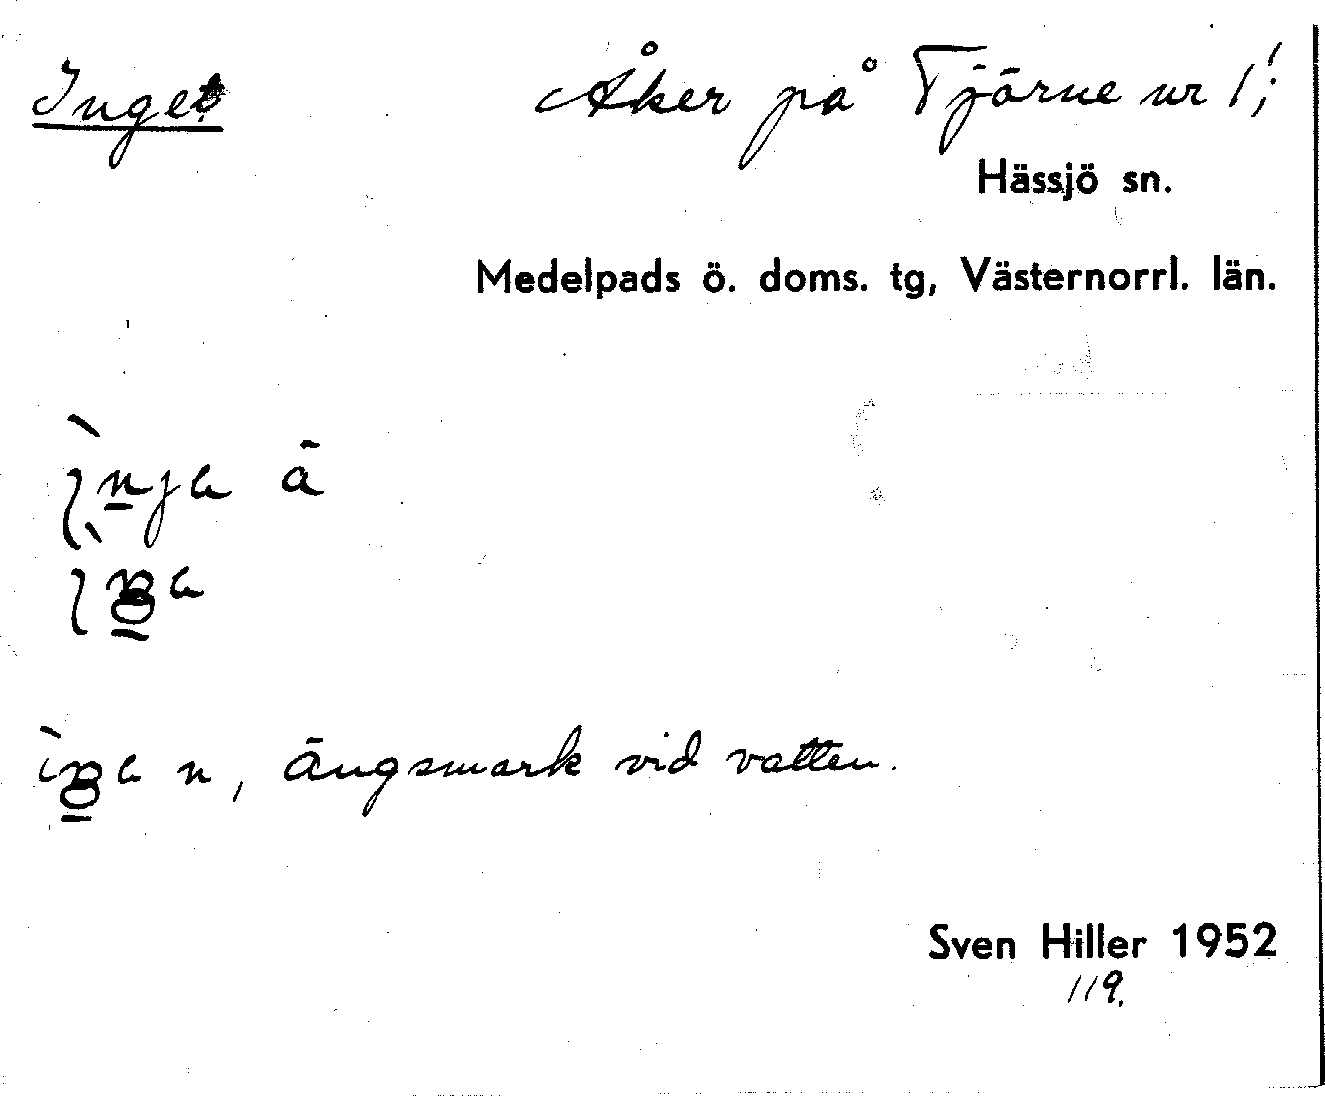 Inget Åker på Tjärne nr 1;
Hässjö sn.
Medelpads ö. doms. tg, Västernorrl. län.
n, ängsmark vid vatten.
Sven Hiller 1952
119.